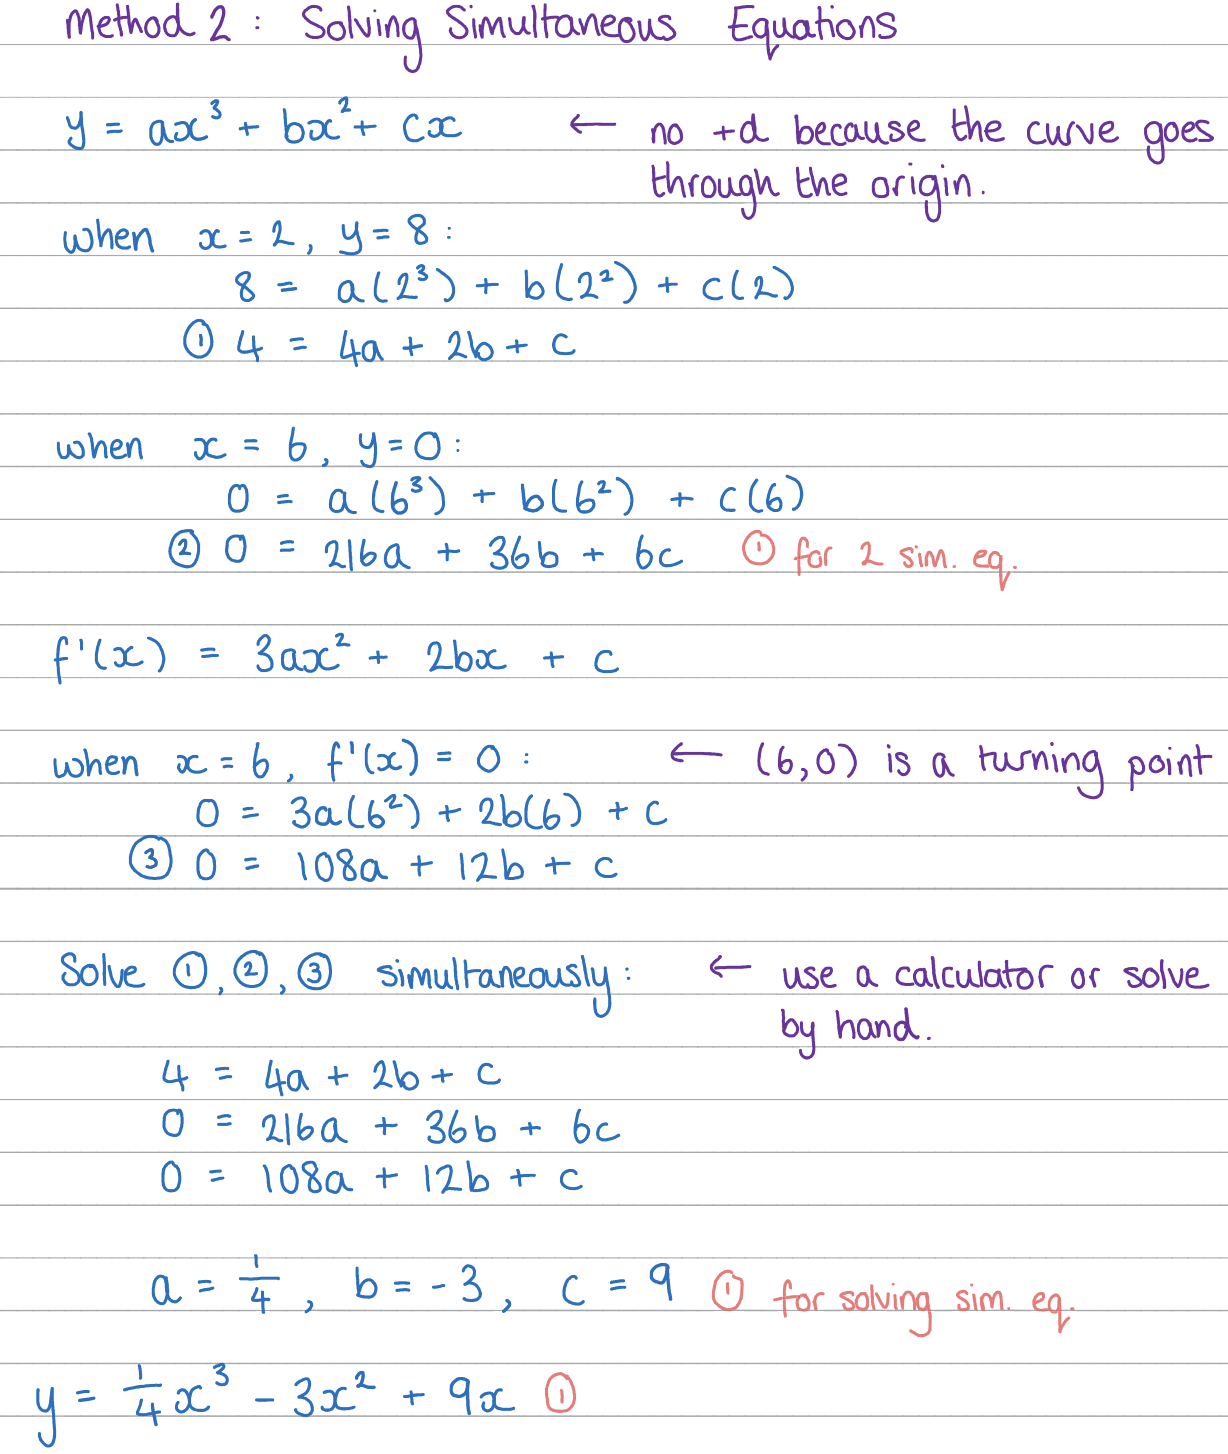 Method 2 : Solving Simultaneous Equations
y = ax³ + bx² + cx ← no +d because the curve goes
through the origin.
when x = 2, y = 8 :
8 = a(2³) + b(2²) + c(2)
① 4 = 4a + 2b + c
when x = 6, y = 0 :
0 = a(6³) + b(6²) + c(6)
② 0 = 216a + 36b + 6c ① for 2 sim. eq.
f'(x) = 3ax² + 2bx + c
when x = 6, f'(x) = 0 : ← (6,0) is a turning point
0 = 3a(6²) + 2b(6) + c
③ 0 = 108a + 12b + c
Solve ①, ②, ③ simultaneously : ← use a calculator or solve
by hand.
4 = 4a + 2b + c
0 = 216a + 36b + 6c
0 = 108a + 12b + c
a = 1/4, b = -3, c = 9 ① for solving sim. eq.
y = 1/4 x³ - 3x² + 9x ①